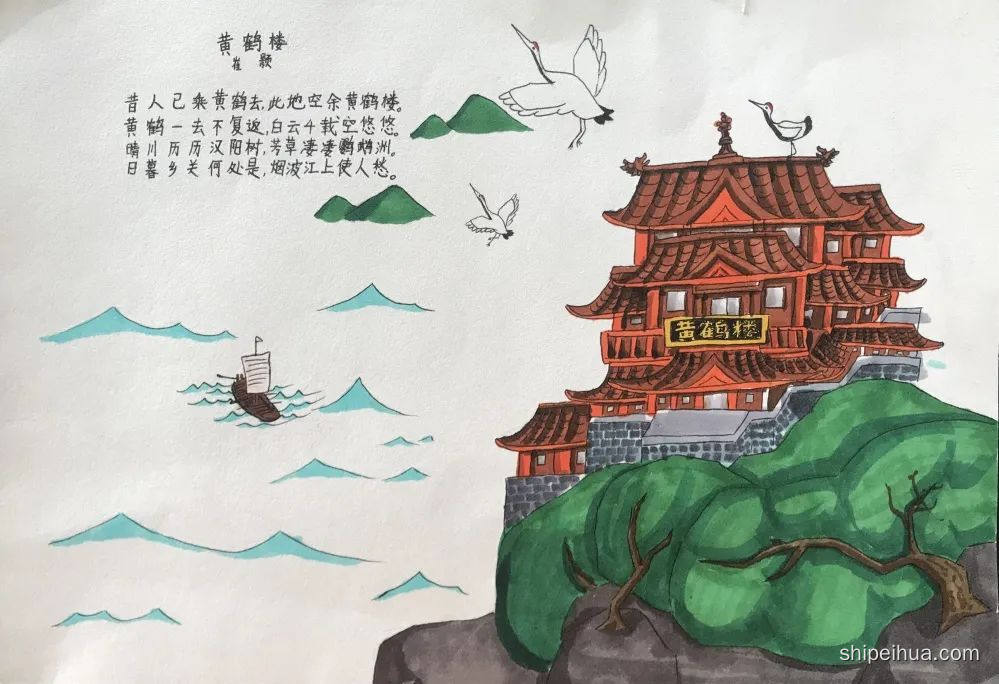 黄鹤楼
崔颢
昔人已乘黄鹤去,此地空余黄鹤楼。
黄鹤一去不复返,白云千载空悠悠。
晴川历历汉阳树,芳草凄凄鹦鹉洲。
日暮乡关何处是,烟波江上使人愁。
黄鹤楼
shipeihua.com